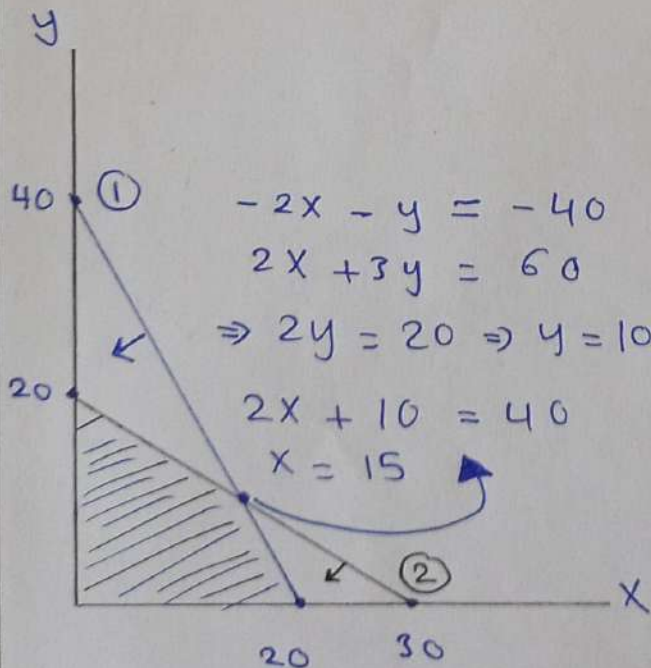 y
40 ①
-2x - y = -40
2x + 3y = 60
⇒ 2y = 20 ⇒ y = 10
20
2x + 10 = 40
x = 15
②
x
20 30